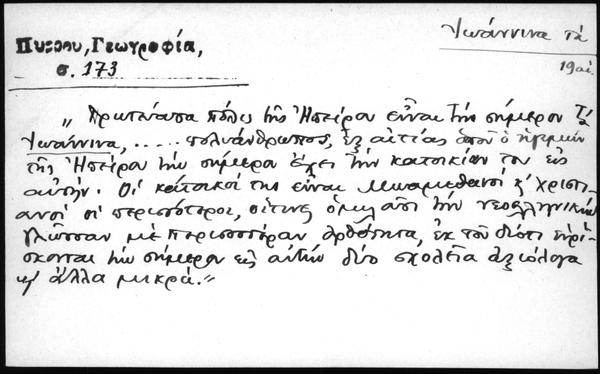 Ἰωάννινα τά
Πύρρου, Γεωγραφία,
σ. 173
19 αἰ.
„Πρωτεύουσα πόλις τῆς Ἠπείρου εἶναι τήν σήμερον Τά
Ἰωάννινα, ..... πολυάνθρωπος, ἐξ αἰτίας ὁποῦ ὁ ἡγεμών
τῆς Ἠπείρου τήν σήμερον ἔχει τήν κατοικίαν του εἰς
αὐτήν. Οἱ κάτοικοί της εἶναι Μωαμεθανοί κ' Χριστι-
ανοί οἱ περισσότεροι, οἵτινες ὁμιλοῦσι τήν νεοελληνικήν
γλῶσσαν μέ περισσοτέραν ὀρθότητα, ἐκ τοῦ διότι εὑρί-
σκονται τήν σήμερον εἰς αὐτήν δύο σχολεῖα ἀξιόλογα
κ' ἄλλα μικρά."